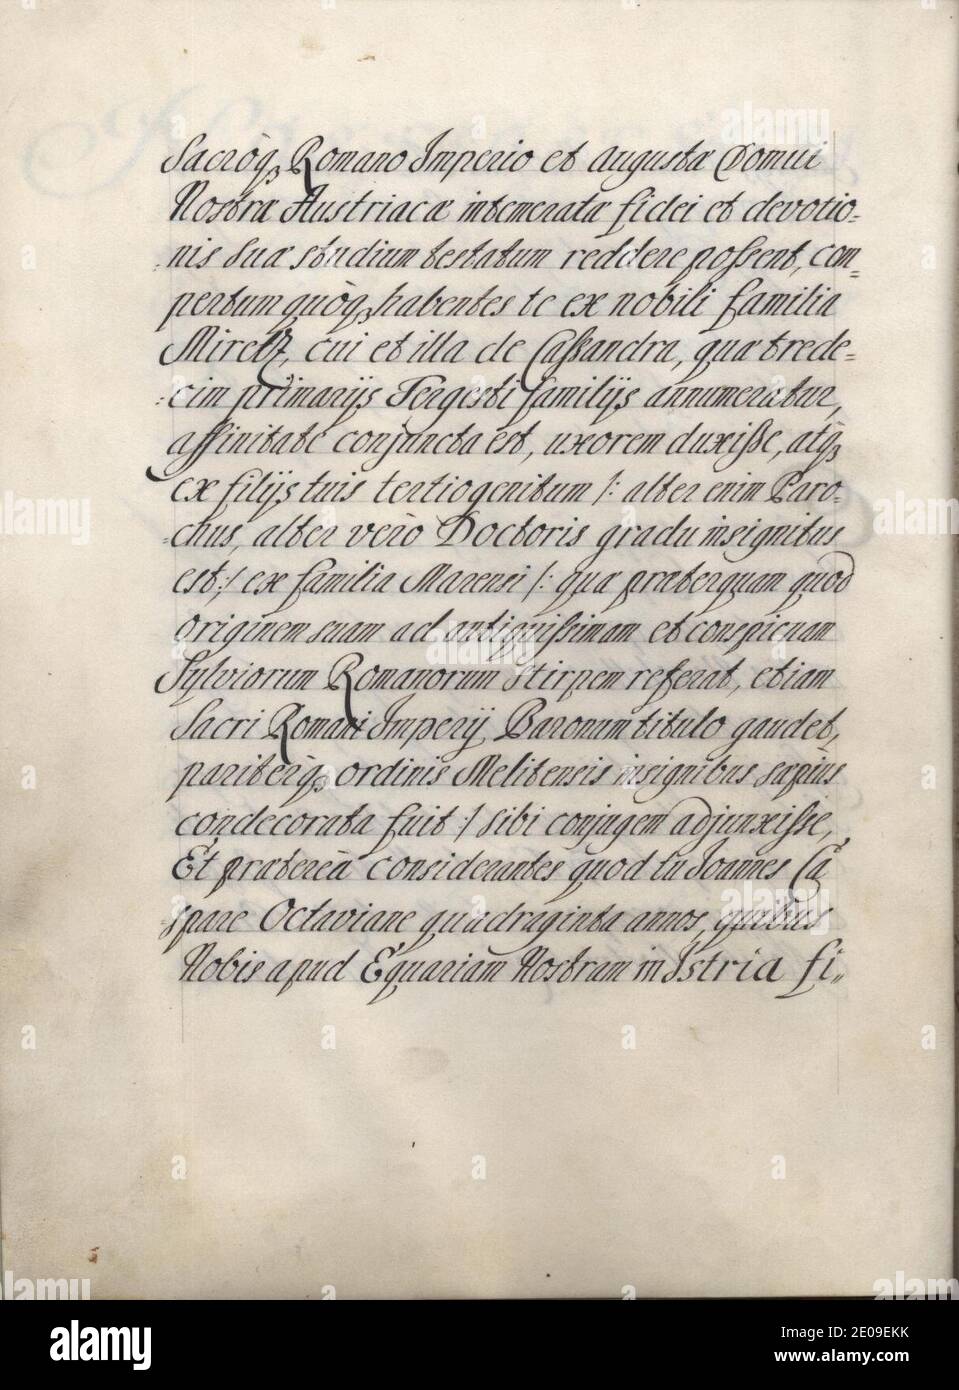 Sacroq₃ Romano Imperio et Augustæ Domui
Nostræ Austriacæ intemeratæ fidei et devotio=
=nis suæ studium testatum reddere possent, com=
pertum quòq₃ habentes te ex nobili familia
cui et illa de Cassandra, quæ trede=
=cim primarijs Tergesti familijs annumeratur,
affinitate conjuncta est, uxorem duxisse, atq₃
ex filijs tuis tertiogenitum /: alter enim Paro=
=chus, alter verò Doctoris gradu insignitus
est :/ ex familia Marensi /: quæ præterquam quod
originem suam ad antiquissimam et conspicuam
Sylviorum Romanorum stirpem referat, etiam
Sacri Romani Imperij Baronum titulo gaudet,
pariterq₃ ordinis Melitensis insignibus sæpius
condecorata fuit :/ sibi conjugem adjunxisse,
Et prætereà considerantes quod tu Joannes Ca
=spare Octaviane quadraginta annos, quibus
Nobis apud Equariam Nostram in Istria fi=
alamy
Image ID: 2E09EKK
www.alamy.com